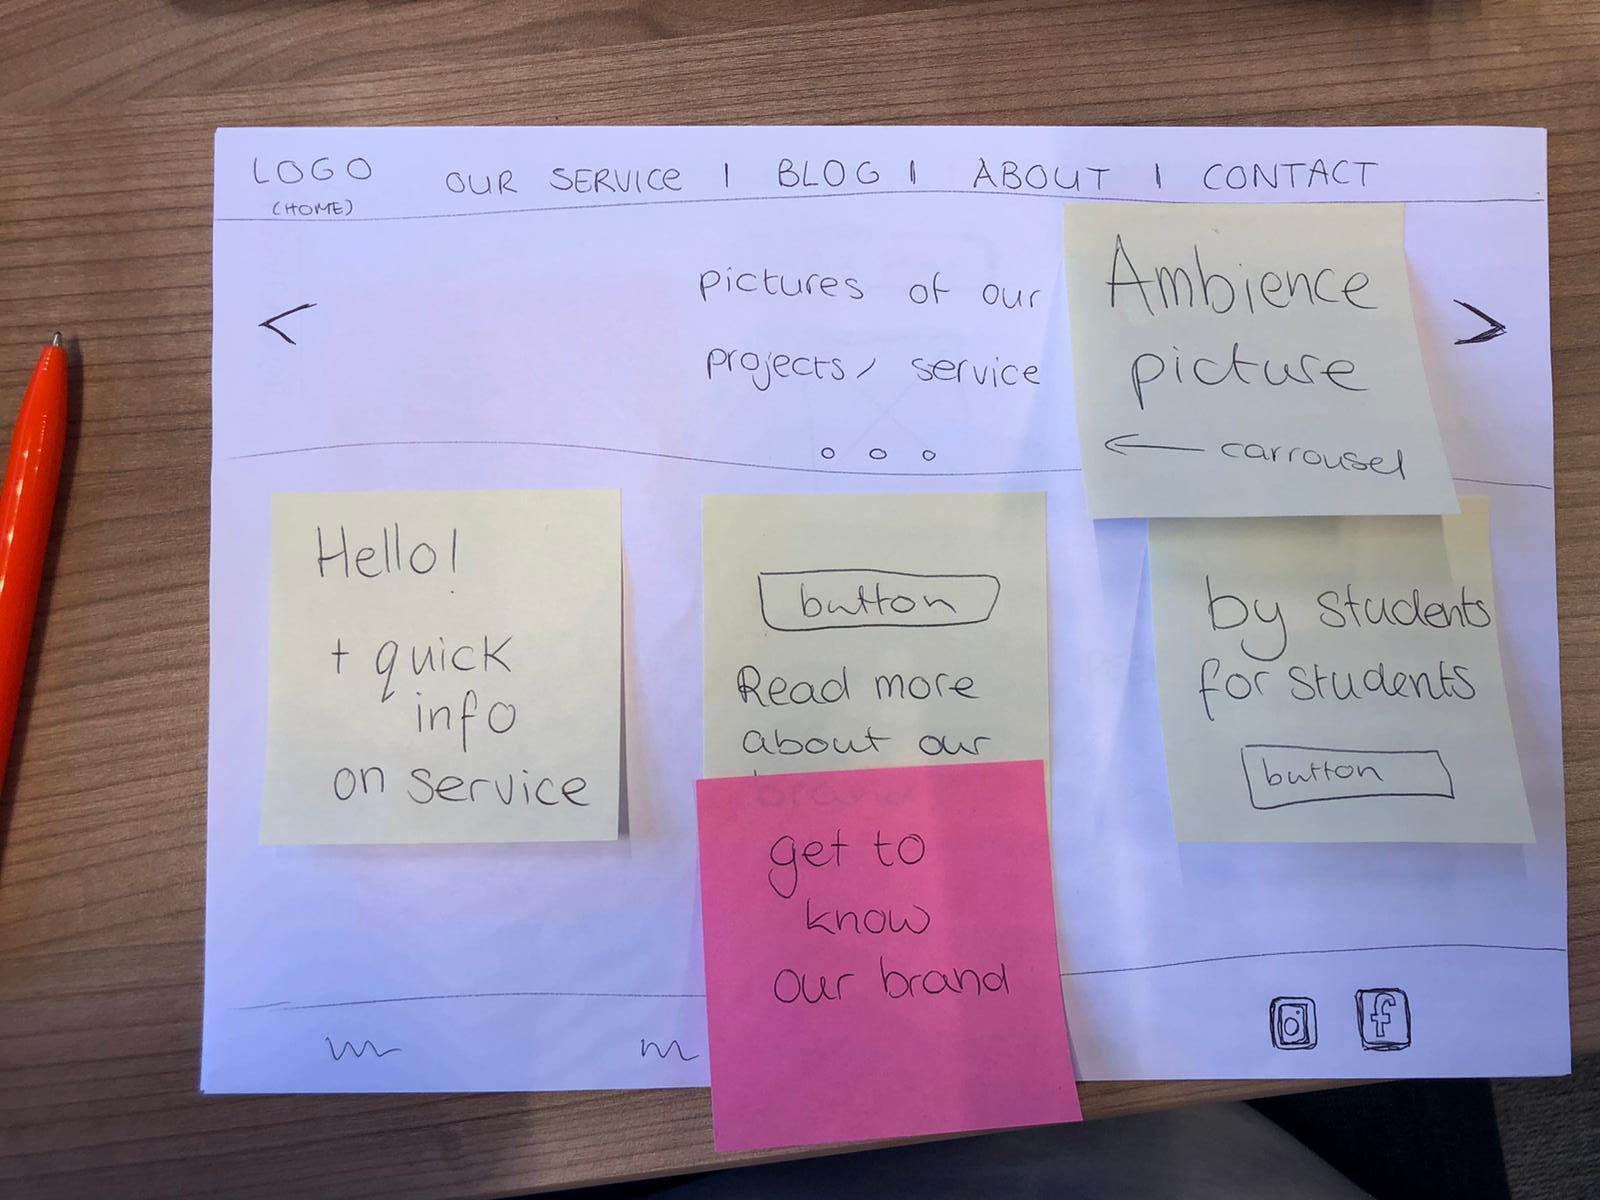 LOGO
(HOME)
OUR SERVICE | BLOG | ABOUT | CONTACT
<
pictures of our
projects/ service
Ambience
picture
← carrousel
>
Hello!
+ quick
info
on service
button
Read more
about our
brand
get to
know
our brand
by students
for students
button
f